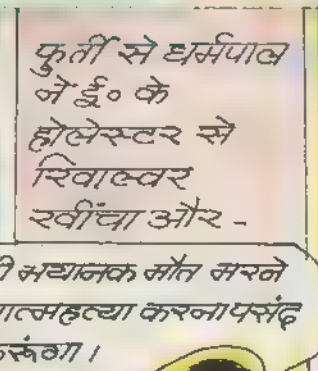 फुर्ती से धर्मपाल
ने ई० के
होलेस्टर से
रिवाल्वर
खींचा और -
भयानक मौत मरने
त्महत्या करना पसंद
करूंगा।